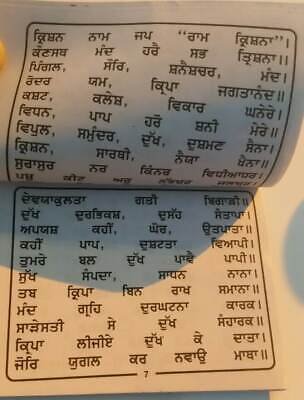 ਕ੍ਰਿਸ਼ਨ ਨਾਮ ਜਪ "ਰਾਮ ਕ੍ਰਿਸ਼ਨਾ"।
ਕੌਣਸਥ ਮੰਦ ਹਰੈ ਸਭ ਤ੍ਰਿਸ਼ਨਾ॥
ਪਿੰਗਲ, ਸੌਰਿ, ਸ਼ਨੈਸ਼ਚਰ, ਮੰਦ।
ਰੋਦਰ ਯਮ, ਕ੍ਰਿਪਾ ਜਗਤਾਨੰਦ॥
ਕਸ਼ਟ, ਕਲੇਸ਼, ਵਿਕਾਰ ਘਨੇਰੇ।
ਵਿਧਨ, ਪਾਪ ਹਰੋ ਸ਼ਨੀ ਮੇਰੇ॥
ਵਿਪੁਲ, ਸਮੁੰਦਰ, ਦੁੱਖ, ਦੁਸ਼ਮਣ ਸੈਨਾ।
ਕ੍ਰਿਸ਼ਨ, ਸਾਰਥੀ, ਨੈਯਾ ਖੈਨਾ॥
ਸੁਰਾਸੁਰ ਨਰ ਕਿੰਨਰ ਵਿਦੀਆਧਰ।
ਪਸ਼ੂ ਕੀਟ ਅਰੁ
ਦੇਵਯਾਕੁਲਤਾ ਗਤੀ ਬਿਗਾੜੀ॥
ਦੁੱਖ ਦੁਰਭਿਕਸ਼, ਦੁਸੱਹ ਸੰਤਾਪਾ।
ਅਪਯਸ਼ ਕਹੀਂ, ਘੋਰ, ਉਤਪਾਤਾ॥
ਕਹੀਂ ਪਾਪ, ਦੁਸ਼ਟਤਾ ਵਿਆਪੀ।
ਤੁਮਰੇ ਬਲ ਦੁੱਖ ਪਾਵੈ ਪਾਪੀ॥
ਸੁੱਖ ਸੰਪਦਾ, ਸਾਧਨ ਨਾਨਾ।
ਤਬ ਕ੍ਰਿਪਾ ਬਿਨ ਰਾਖ ਸਮਾਨਾ॥
ਮੰਦ ਗ੍ਰਹਿ ਦੁਰਘਟਨਾ ਕਾਰਕ।
ਸਾੜੇਸਤੀ ਸੇ ਦੁੱਖ ਸੰਹਾਰਕ॥
ਕ੍ਰਿਪਾ ਲੀਜੀਏ ਦੁੱਖ ਕੇ ਦਾਤਾ।
ਜੋਰਿ ਯੁਗਲ ਕਰ ਨਵਾਉ ਮਾਥਾ॥
7